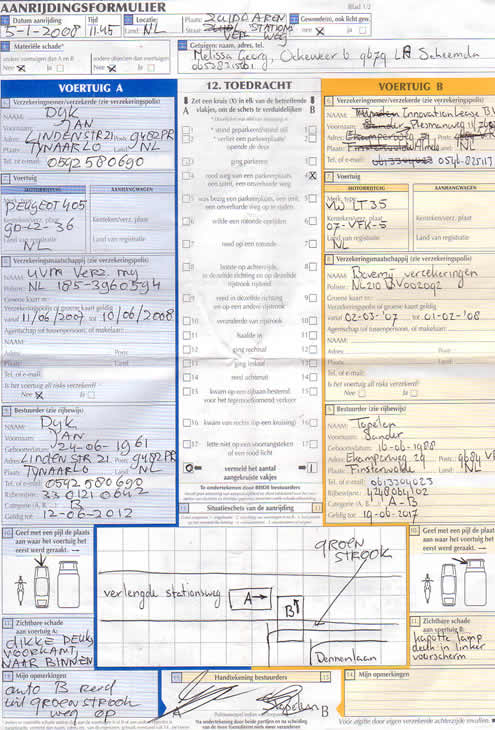 AANRIJDINGSFORMULIER
Blad 1/2
1. Datum aanrijding
Tijd
2. Locatie:
Plaats: ZUIDLAREN
3. Gewonde(n), ook licht gew.
5-1-2008 11.45 Land: NL
STATIONS
WEG
nee X ja
4. Materiële schade*
andere voertuigen dan A en B
andere objecten dan voertuigen
nee X ja
nee X ja
5. Getuigen: naam, adres, tel.
Melissa Georg, Ockeweer 6 9679 LA Scheemda
VOERTUIG A
6. Verzekeringnemer/verzekerde (zie verzekeringspolis)
NAAM: DYK
Voornaam: JAN
Adres: LINDENSTR 21 Postc 9482PR
Plaats: TYNAARLO Land: NL
Tel. of e-mail: 0592 580690
7. Voertuig
MOTORRIJTUIG
AANHANGWAGEN
Merk, type
PEUGEOT 405
Kenteken/verz. plaat
Kenteken/verz. plaat
GD-ZZ-36
Land van registratie
Land van registratie
NL
8. Verzekeringsmaatschappij (zie verzekeringspolis)
NAAM: UVM Verz. my
Polisnr.: NL 185-3960594
Groene kaart nr.:
Verzekeringspolis of groene kaart geldig
vanaf 11/06/2007 tot 10/06/2008
Agentschap (of tussenpersoon, of makelaar):
NAAM:
Adres: Postc
Plaats: Land:
Tel. of e-mail:
Is het voertuig all risks verzekerd?
nee X ja
9. Bestuurder (zie rijbewijs)
NAAM: DYK
Voornaam: JAN
Geboortedatum: 24-06-1961
Adres: LINDENSTR. 21 9482PR
Plaats: TYNAARLO Land: NL
Tel. of e-mail: 0592 580690
Rijbewijsnr.: 3301210642
Categorie (A, B...): B
Geldig tot: 12-06-2012
12. TOEDRACHT
Zet een kruis (X) in elk van de betreffende vlakjes, om de schets te verduidelijken
1 * stond geparkeerd/stond stil 1
2 * verliet een parkeerplaats/opende de deur 2
3 ging parkeren 3
4 reed weg van een parkeerplaats, een uitrit, een onverharde weg 4 X
5 was bezig een parkeerplaats, een inrit, een onverharde weg op te rijden 5
6 wilde een rotonde oprijden 6
7 reed op een rotonde 7
8 botste op achterzijde, in dezelfde richting en op dezelfde rijstrook rijdend 8
9 reed in dezelfde richting en op een andere rijstrook 9
10 veranderde van rijstrook 10
11 haalde in 11
12 ging rechtsaf 12
13 ging linksaf 13
14 reed achteruit 14
15 kwam op een rijbaan bestemd voor het tegemoetkomend verkeer 15
16 kwam van rechts (op een kruising) 16
17 lette niet op een voorrangsteken of een rood licht 17
0 vermeld het aantal aangekruiste vakjes 1
Te ondertekenen door BEIDE bestuurders
VOERTUIG B
6. Verzekeringnemer/verzekerde (zie verzekeringspolis)
NAAM: Innovation Lease B.V.
Voornaam: Plesmanweg
Tel. of e-mail: 0613304023
7. Voertuig
MOTORRIJTUIG
AANHANGWAGEN
Merk, type
VW LT35
Kenteken/verz. plaat
Kenteken/verz. plaat
07-VFK-5
Land van registratie
Land van registratie
NL
8. Verzekeringsmaatschappij (zie verzekeringspolis)
NAAM: Bovemij verzekeringen
Polisnr.: NL210 BV002092
Groene kaart nr.:
Verzekeringspolis of groene kaart geldig
vanaf 02-03-'07 tot 01-07-'08
Agentschap (of tussenpersoon, of makelaar):
NAAM:
Adres: Postc
Plaats: Land:
Tel. of e-mail:
Is het voertuig all risks verzekerd?
nee ja
9. Bestuurder (zie rijbewijs)
NAAM: Tepelen
Voornaam: Sander
Geboortedatum: 16-06-1988
Adres: Ekamperweg 29 9684
Plaats: Finsterwolde Land: NL
Tel. of e-mail: 0613304023
Rijbewijsnr.:
Categorie (A, B...): A-B
Geldig tot: 19-06-2017
10. Geef met een pijl de plaats aan waar het voertuig het eerst werd geraakt.
13. Situatieschets van de aanrijding
GROEN
STROOK
verlengde stationsweg
A
B
Dennenlaan
10. Geef met een pijl de plaats aan waar het voertuig het eerst werd geraakt.
11. Zichtbare schade aan voertuig A:
DIKKE DEUK
VOORKANT,
NAAR BINNEN
11. Zichtbare schade aan voertuig B:
kapotte lamp
deuk in linker
voorscherm
14. Mijn opmerkingen
auto B reed
uit GROENSTROOK
weg op
15. Handtekening bestuurders 15.
A
B
14. Mijn opmerkingen